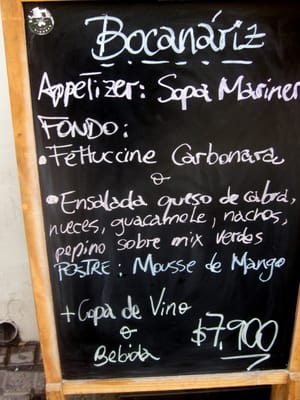 Bocanáriz
Appetizer: Sopa Mariner
FONDO:
• Fettuccine Carbonara
o
• Ensalada queso de cabra,
nueces, guacamole, nachos,
pepino sobre mix verdes
POSTRE: Mousse de Mango
+ Copa de Vino
o
Bebida
$7,900